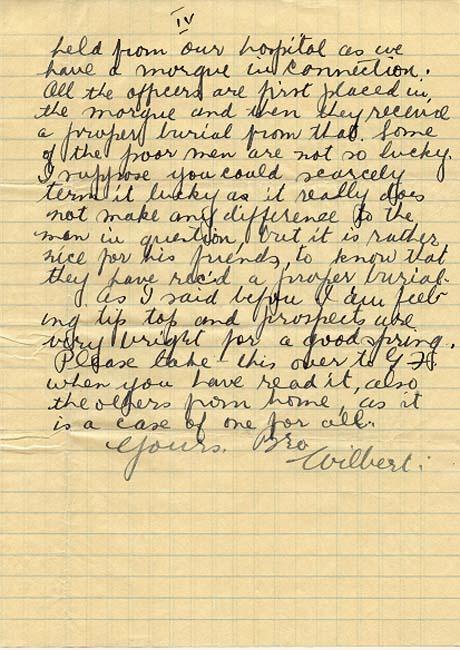 IV
held from our hospital as we
have a morgue in connection.
All the officers are first placed in
the morgue and then they receive
a proper burial from that. Some
of the poor men are not so lucky.
I suppose you could scarcely
term it lucky as it really does
not make any difference to the
man in question, but it is rather
nice for his friends, to know that
they have rec'd a proper burial.
As I said before I am feel-
ing tip top and prospects are
very bright for a good spring.
Please take this over to
when you have read it, also
the others from home, as it
is a case of one for all.
Yours. Bro
Wilbert.